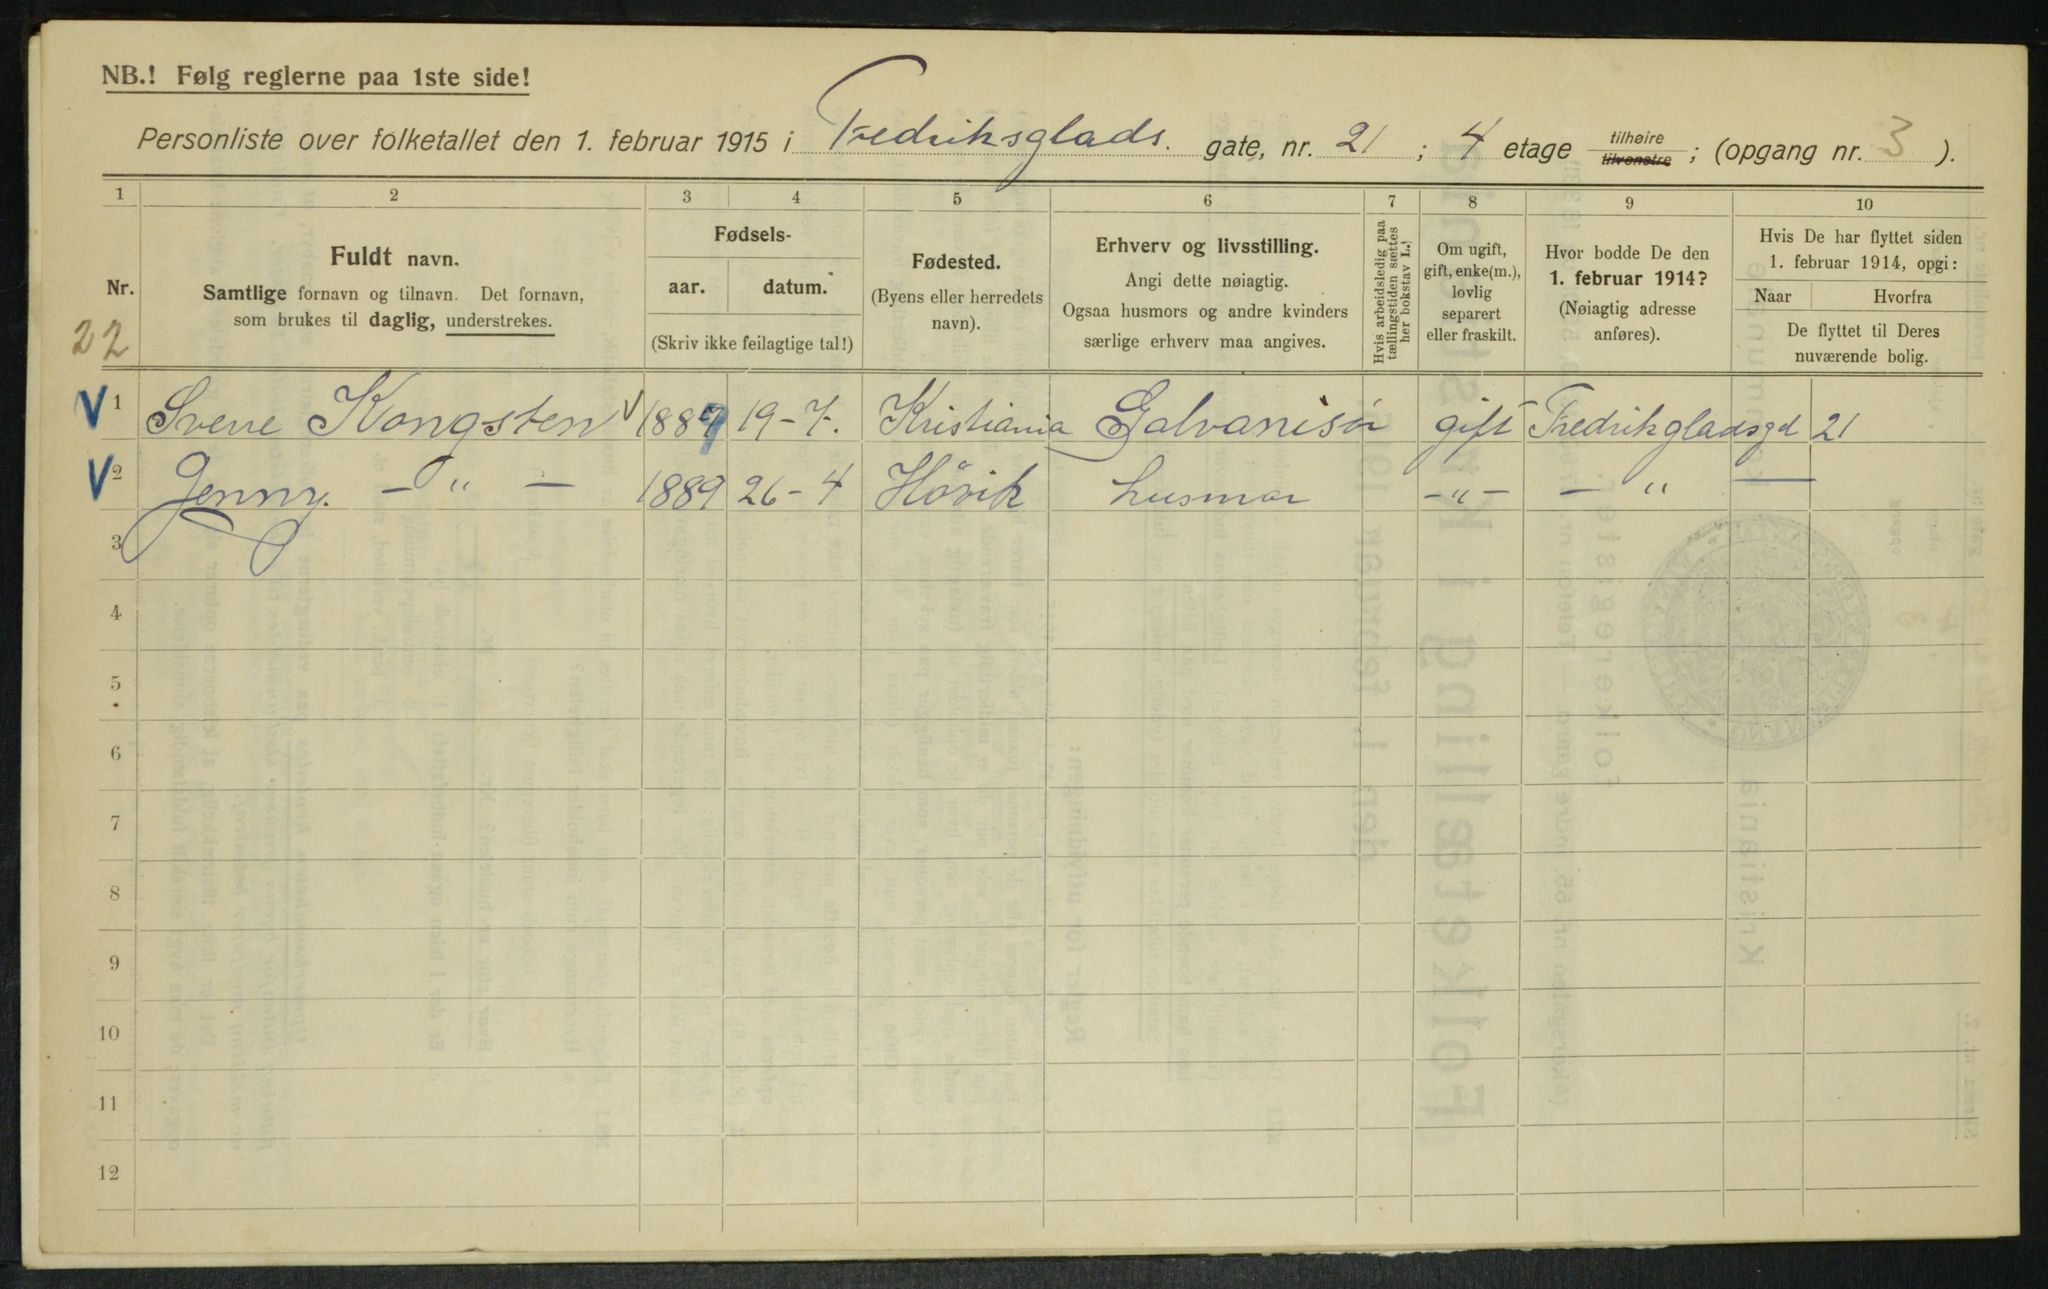 NB.! Følg reglerne paa 1ste side!
Personliste over folketallet den 1. februar 1915 i Fredriksglads. gate, nr. 21 ; 4 etage tilhøire tilvenstre ; (opgang nr. 3 ).
1 2 3 4 5 6 7 8 9 10
Nr.
22
Fuldt navn.
Samtlige fornavn og tilnavn. Det fornavn,
som brukes til daglig, understrekes.
Fødsels-
aar. datum.
(Skriv ikke feilagtige tal!)
Fødested.
(Byens eller herredets
navn).
Erhverv og livsstilling.
Angi dette nøiagtig.
Ogsaa husmors og andre kvinders
særlige erhverv maa angives.
Hvis arbeidsledig paa
tællingstiden sættes
her bokstav L.!
Om ugift,
gift, enke(m.),
lovlig
separert
eller fraskilt.
Hvor bodde De den
1. februar 1914?
(Nøiagtig adresse
anføres).
Hvis De har flyttet siden
1. februar 1914, opgi:
Naar Hvorfra
De flyttet til Deres
nuværende bolig.
V 1 Sverre Kongsten V 1887 19-7. Kristiania Galvanisør gift Fredrikgladsgd 21
V 2 Jenny. — " — 1889 26-4 Hövik husmor -"- — " —
3
4
5
6
7
8
9
10
11
12